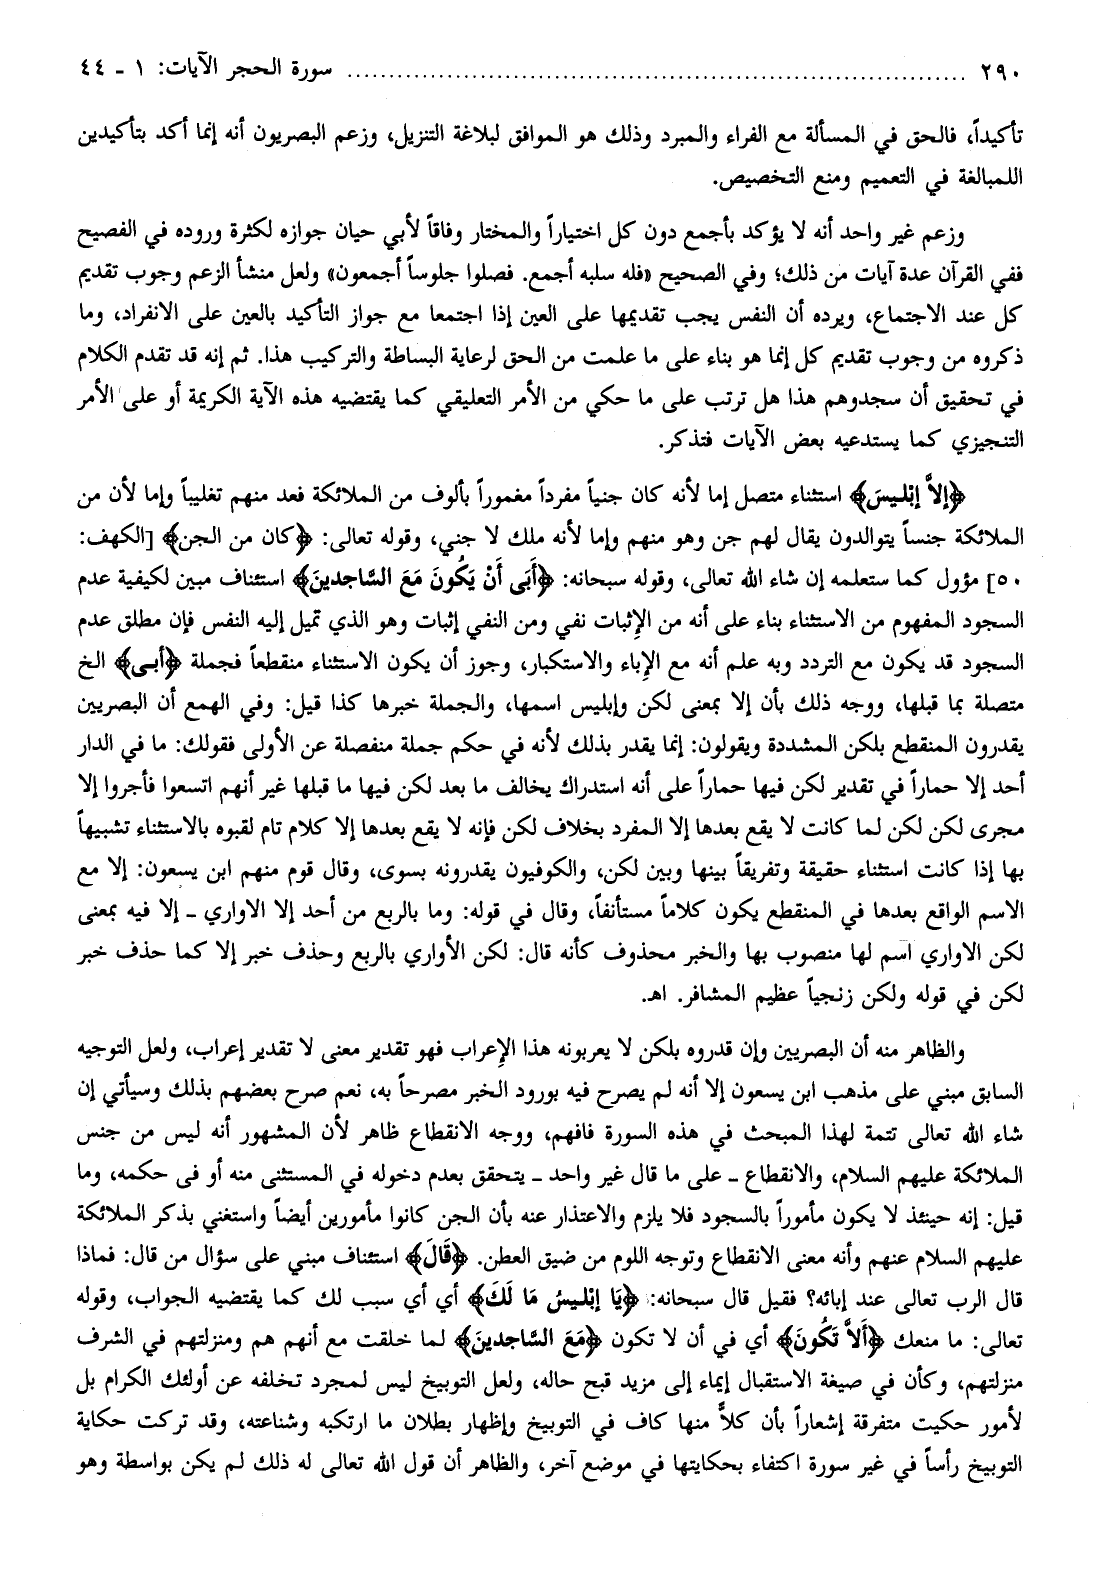 ٢٩٠ ........................................................................ سورة الحجر الآيات: ١ ـ ٤٤
تأكيداً، فالحق في المسألة مع الفراء والمبرد وذلك هو الموافق لبلاغة التنزيل، وزعم البصريون أنه إنما أكد بتأكيدين
اللمبالغة في التعميم ومنع التخصيص.
وزعم غير واحد أنه لا يؤكد بأجمع دون كل اختياراً والمختار وفاقاً لأبي حيان جوازه لكثرة وروده في الفصيح
ففي القرآن عدة آيات من ذلك؛ وفي الصحيح «فله سلبه أجمع. فصلوا جلوساً أجمعون» ولعل منشأ الزعم وجوب تقديم
كل عند الاجتماع، ويرده أن النفس يجب تقديمها على العين إذا اجتمعا مع جواز التأكيد بالعين على الانفراد، وما
ذكروه من وجوب تقديم كل إنما هو بناء على ما علمت من الحق لرعاية البساطة والتركيب هذا. ثم إنه قد تقدم الكلام
في تحقيق أن سجدوهم هذا هل ترتب على ما حكي من الأمر التعليقي كما يقتضيه هذه الآية الكريمة أو على الأمر
التنجيزي كما يستدعيه بعض الآيات فتذكر.
﴿إلاَّ إبْليسَ﴾ استثناء متصل إما لأنه كان جنياً مفرداً مغموراً بألوف من الملائكة فعد منهم تغليباً وإما لأن من
الملائكة جنساً يتوالدون يقال لهم جن وهو منهم وإما لأنه ملك لا جني، وقوله تعالى: ﴿كان من الجن﴾ [الكهف:
٥٠] مؤول كما ستعلمه إن شاء الله تعالى، وقوله سبحانه: ﴿أَبَى أَنْ يَكُونَ مَعَ السَّاجدينَ﴾ استئناف مبين لكيفية عدم
السجود المفهوم من الاستثناء بناء على أنه من الإِثبات نفي ومن النفي إثبات وهو الذي تميل إليه النفس فإن مطلق عدم
السجود قد يكون مع التردد وبه علم أنه مع الإِباء والاستكبار، وجوز أن يكون الاستثناء منقطعاً فجملة ﴿أبى﴾ الخ
متصلة بما قبلها، ووجه ذلك بأن إلا بمعنى لكن وإبليس اسمها، والجملة خبرها كذا قيل: وفي الهمع أن البصريين
يقدرون المنقطع بلكن المشددة ويقولون: إنما يقدر بذلك لأنه في حكم جملة منفصلة عن الأولى فقولك: ما في الدار
أحد إلا حماراً في تقدير لكن فيها حماراً على أنه استدراك يخالف ما بعد لكن فيها ما قبلها غير أنهم اتسعوا فأجروا إلا
مجرى لكن لكن لما كانت لا يقع بعدها إلا المفرد بخلاف لكن فإنه لا يقع بعدها إلا كلام تام لقبوه بالاستثناء تشبيهاً
بها إذا كانت استثناء حقيقة وتفريقاً بينها وبين لكن، والكوفيون يقدرونه بسوى، وقال قوم منهم ابن يسعون: إلا مع
الاسم الواقع بعدها في المنقطع يكون كلاماً مستأنفاً، وقال في قوله: وما بالربع من أحد إلا الاواري ـ إلا فيه بمعنى
لكن الاواري اسم لها منصوب بها والخبر محذوف كأنه قال: لكن الأواري بالربع وحذف خبر إلا كما حذف خبر
لكن في قوله ولكن زنجياً عظيم المشافر. اهـ.
والظاهر منه أن البصريين وإن قدروه بلكن لا يعربونه هذا الإِعراب فهو تقدير معنى لا تقدير إعراب، ولعل التوجيه
السابق مبني على مذهب ابن يسعون إلا أنه لم يصرح فيه بورود الخبر مصرحاً به، نعم صرح بعضهم بذلك وسيأتي إن
شاء الله تعالى تتمة لهذا المبحث في هذه السورة فافهم، ووجه الانقطاع ظاهر لأن المشهور أنه ليس من جنس
الملائكة عليهم السلام، والانقطاع ـ على ما قال غير واحد ـ يتحقق بعدم دخوله في المستثنى منه أو فى حكمه، وما
قيل: إنه حينئذ لا يكون مأموراً بالسجود فلا يلزم والاعتذار عنه بأن الجن كانوا مأمورين أيضاً واستغني بذكر الملائكة
عليهم السلام عنهم وأنه معنى الانقطاع وتوجه اللوم من ضيق العطن. ﴿قَالَ﴾ استئناف مبني على سؤال من قال: فماذا
قال الرب تعالى عند إبائه؟ فقيل قال سبحانه: ﴿يَا إبْليسُ مَا لَكَ﴾ أي أي سبب لك كما يقتضيه الجواب، وقوله
تعالى: ما منعك ﴿أَلاَّ تَكُونَ﴾ أي في أن لا تكون ﴿مَعَ السَّاجدينَ﴾ لما خلقت مع أنهم هم ومنزلتهم في الشرف
منزلتهم، وكأن في صيغة الاستقبال إيماء إلى مزيد قبح حاله، ولعل التوبيخ ليس لمجرد تخلفه عن أولئك الكرام بل
لأمور حكيت متفرقة إشعاراً بأن كلاًّ منها كاف في التوبيخ وإظهار بطلان ما ارتكبه وشناعته، وقد تركت حكاية
التوبيخ رأساً في غير سورة اكتفاء بحكايتها في موضع آخر، والظاهر أن قول الله تعالى له ذلك لم يكن بواسطة وهو